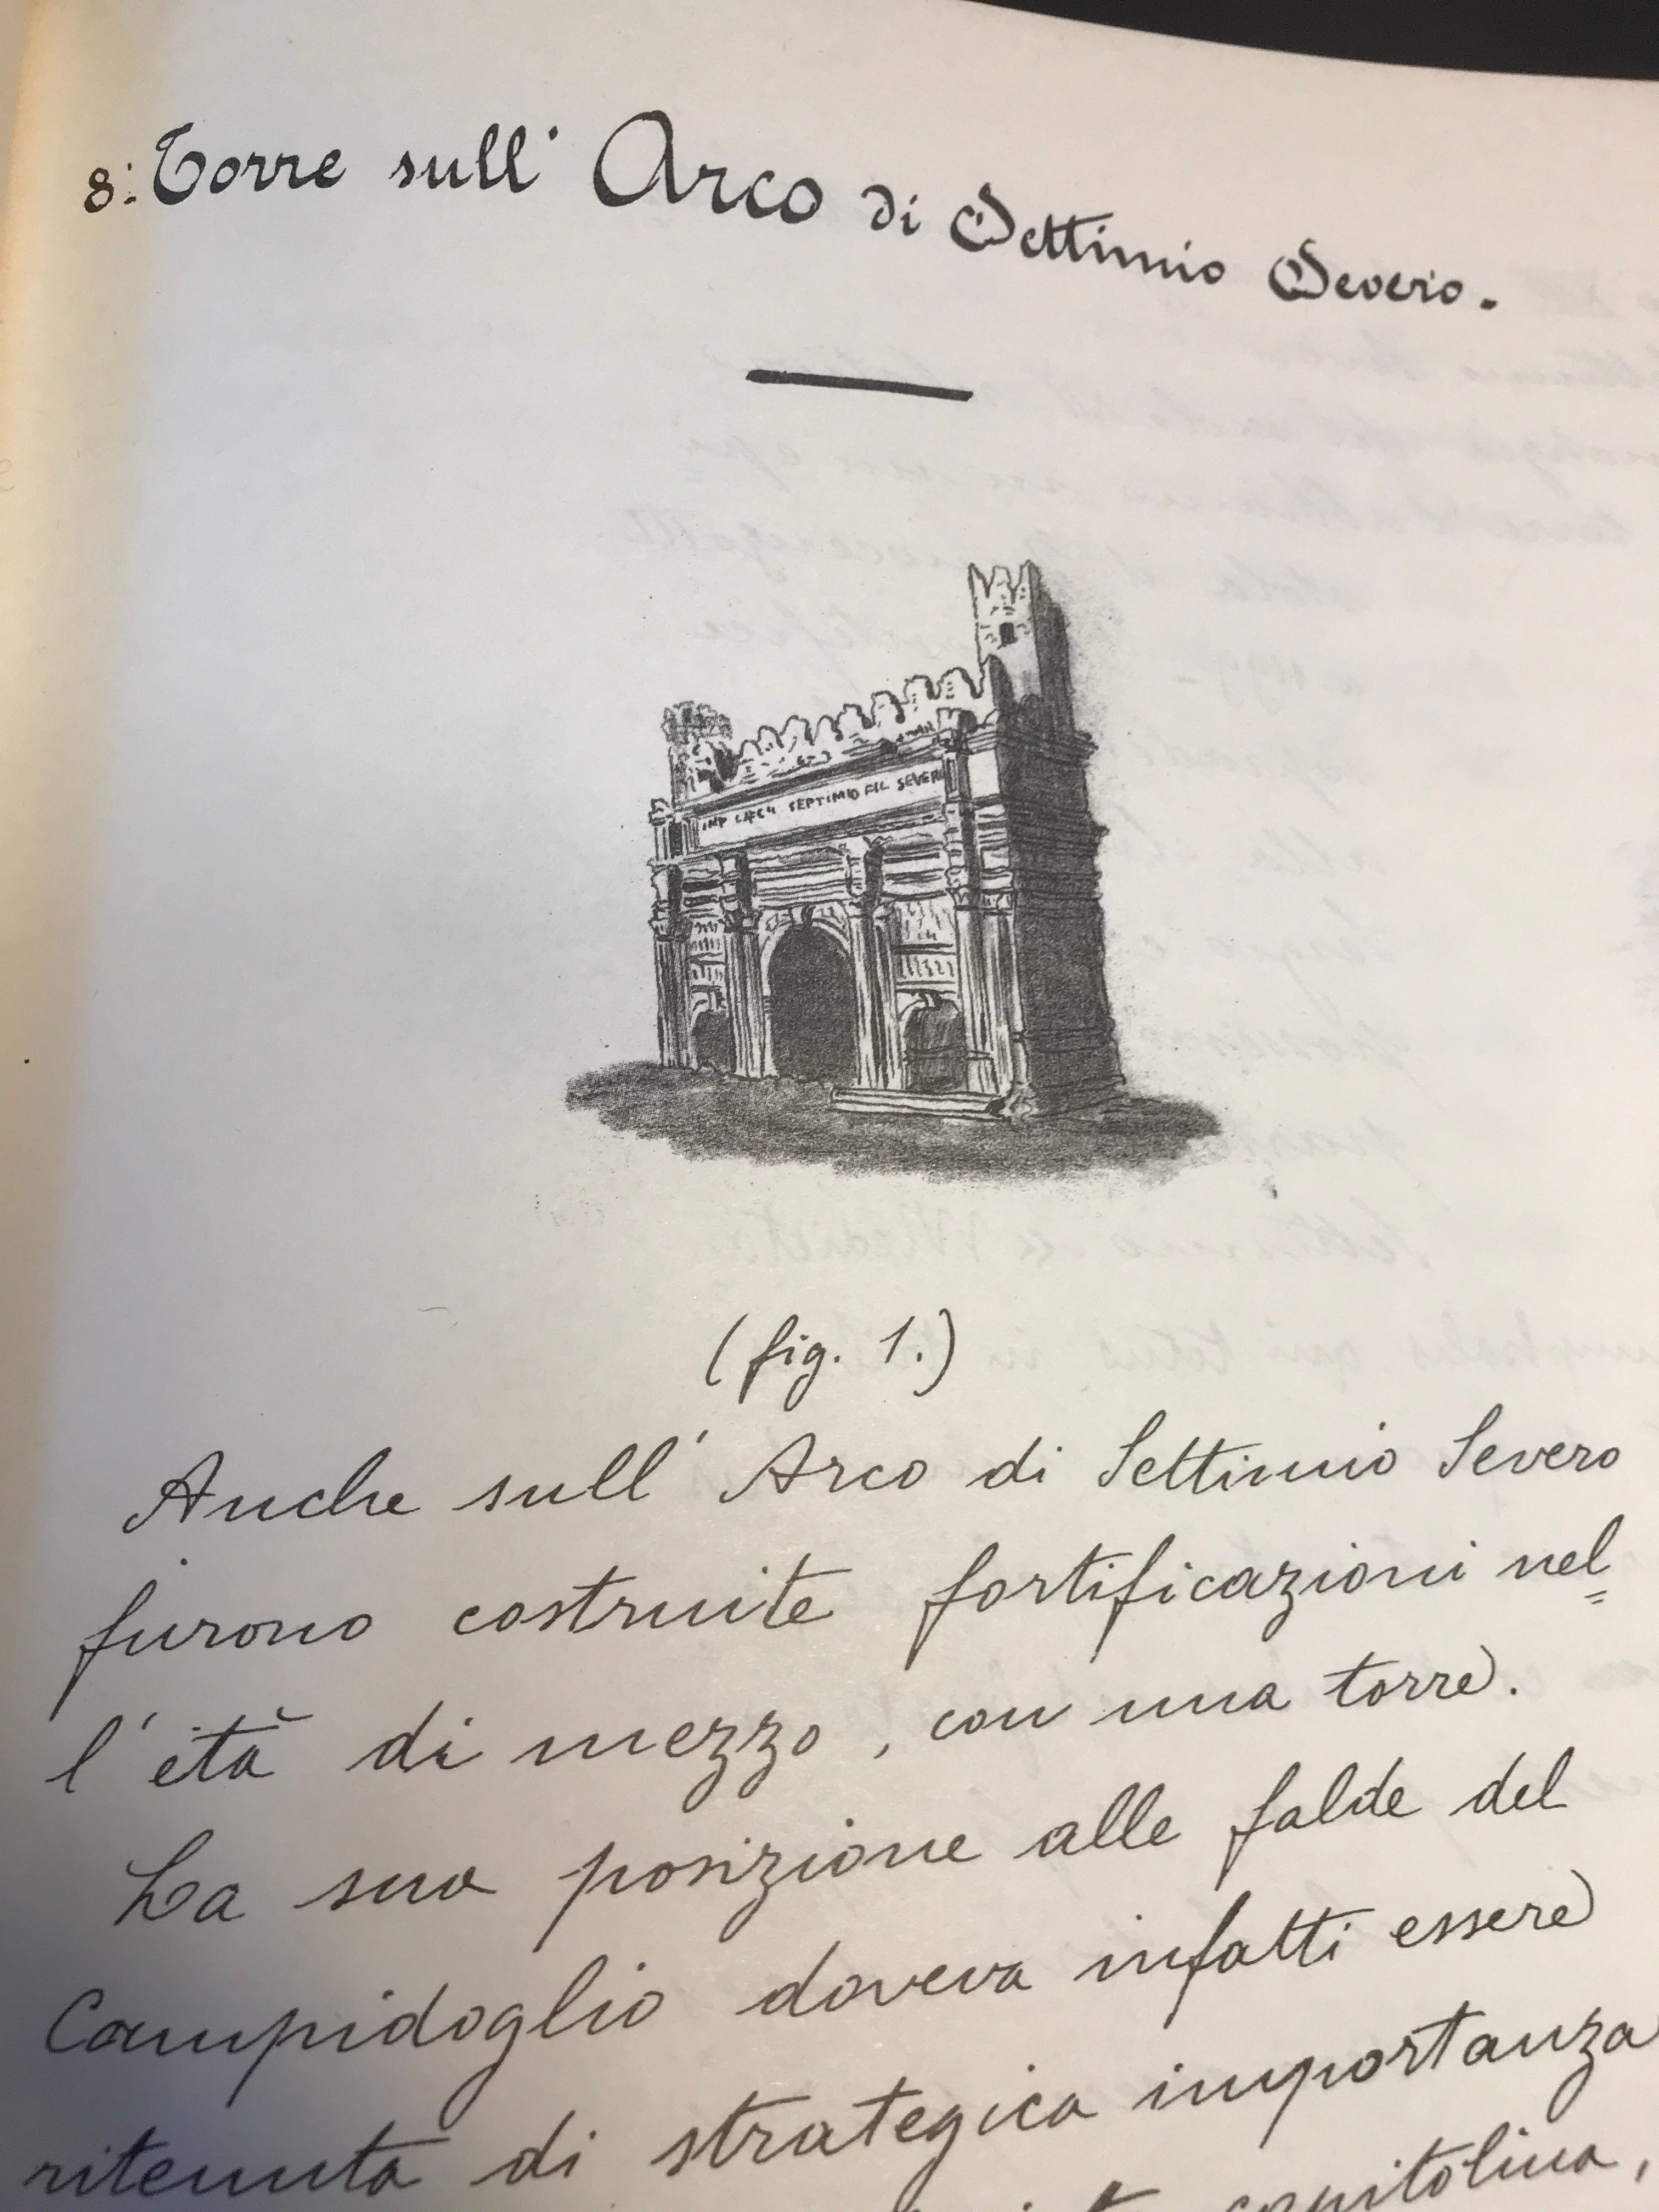 8: Torre sull' Arco di Settimio Severo.
SEPTIMIO FIL SEVER
(fig. 1.)
Anche sull' Arco di Settimio Severo
furono costruite fortificazioni nel=
l'età di mezzo, con una torre.
La sua posizione alle falde del
Campidoglio doveva infatti essere
ritenuta di strategica importanza
capitolina,